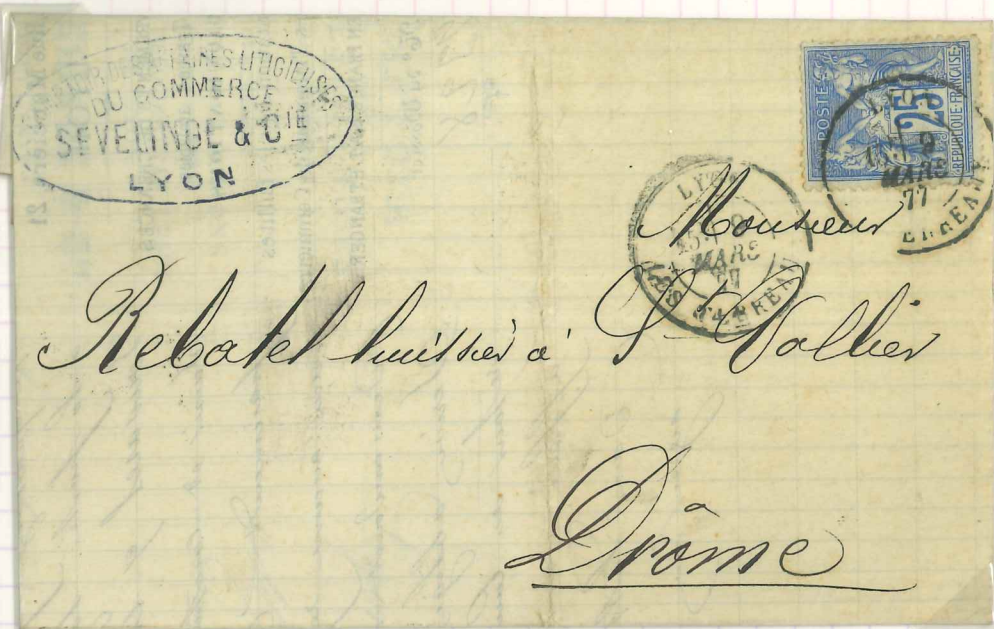 AFFAIRES LITIGIEUSES
DU COMMERCE
SEVELINGE & CIE
LYON
POSTES
25
REPUBLIQUE FRANÇAISE
9
MARS
77
LYON
MARS
LES TERREAUX
Monsieur
Rebatel huissier à St Vallier
Drôme